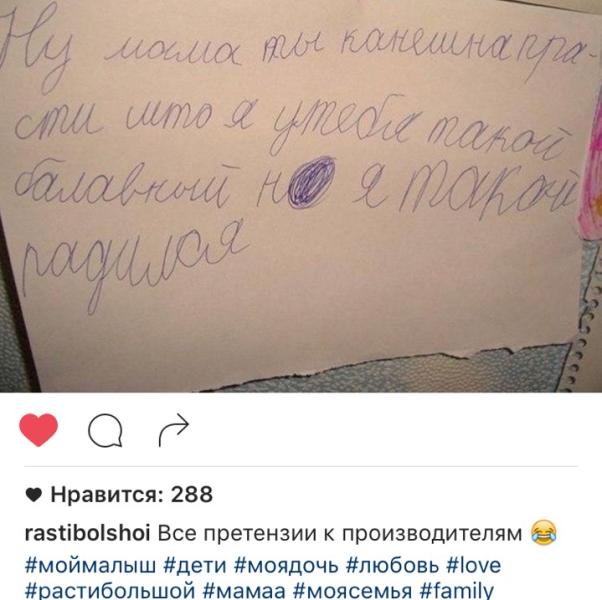 Ну мама ты канешна пра-
сти што я утебя такой
балавный н я такой
радился
Нравится: 288
rastibolshoi Все претензии к производителям 😂
#моймалыш #дети #моядочь #любовь #love
#растибольшой #мамаа #моясемья #family